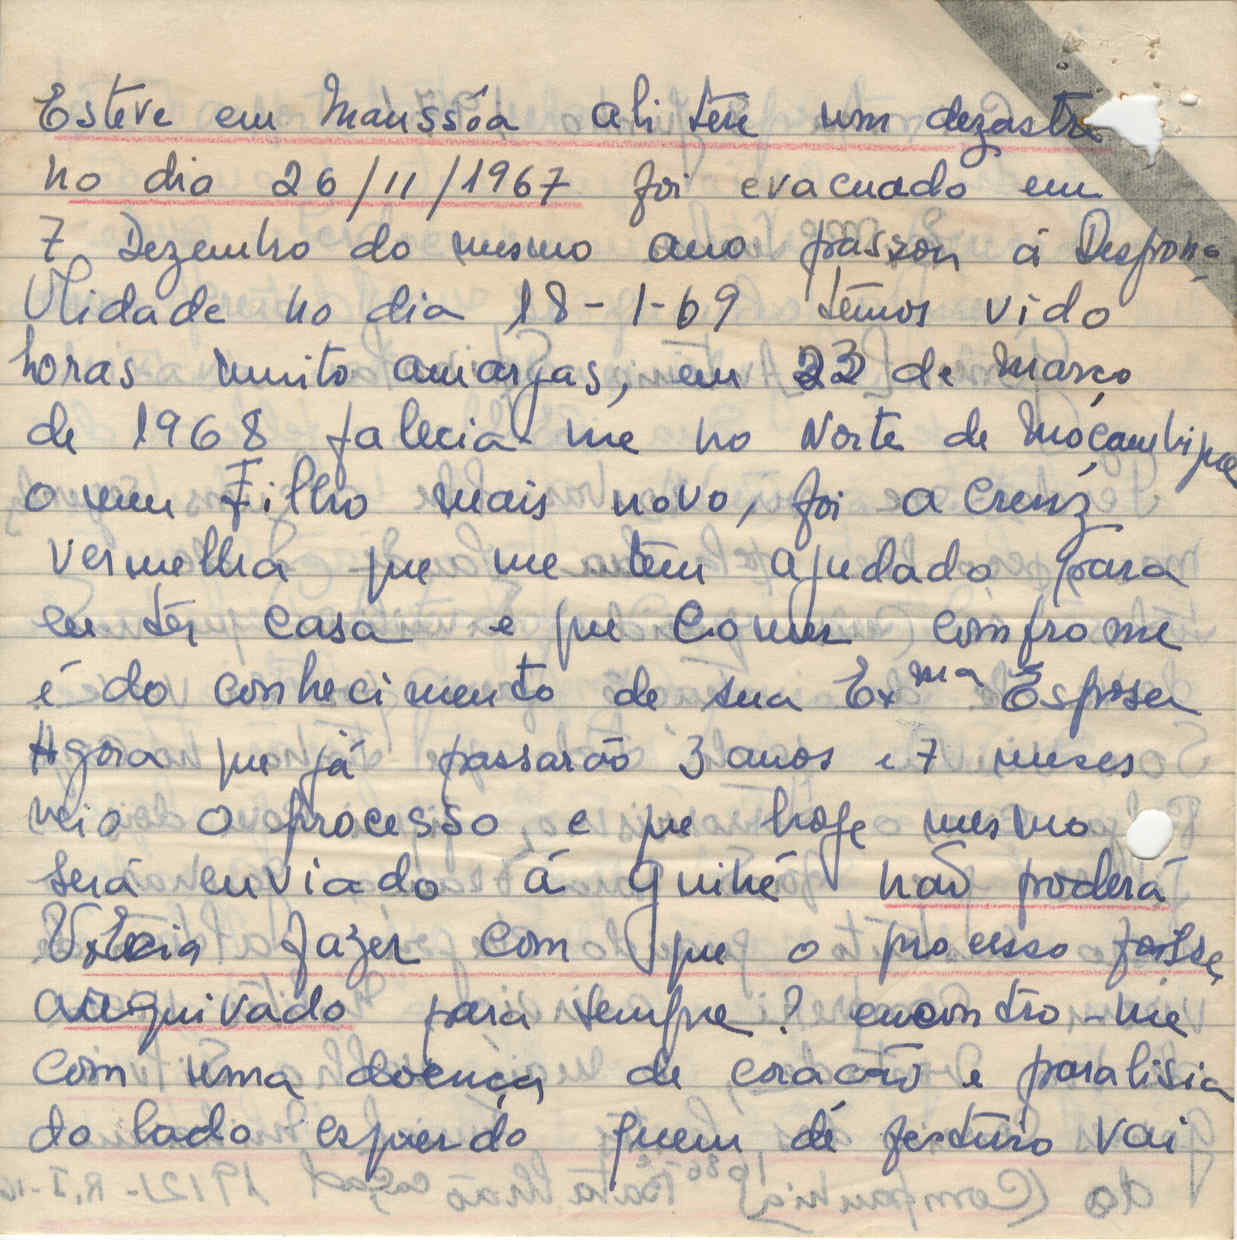 Esteve em Manssóa ali têve um dezastre
no dia 26/11/1967 foi evacuado em
7 Dezembro do mesmo ano passou á Desponi
blidade no dia 18-1-69 têmos vido
horas muito amargas, em 23 de Março
de 1968 falecia-me no Norte de Moçambique
o meu Filho mais novo, foi a Creuz
vermelha que me têm ajudado para
eu têr casa e que comer comfrome
é do conhecimento de sua Exma Esposa
Agora que já passarão 3 anos e 7 meses
veio o processo e que hoge mesmo
será enviado á guiné não poderá
V. Excia fazer com que o processo fosse
arquivado para sempre? encontro-me
com uma doença de coracão e paralisia
do lado esquerdo quem de fecturo vai